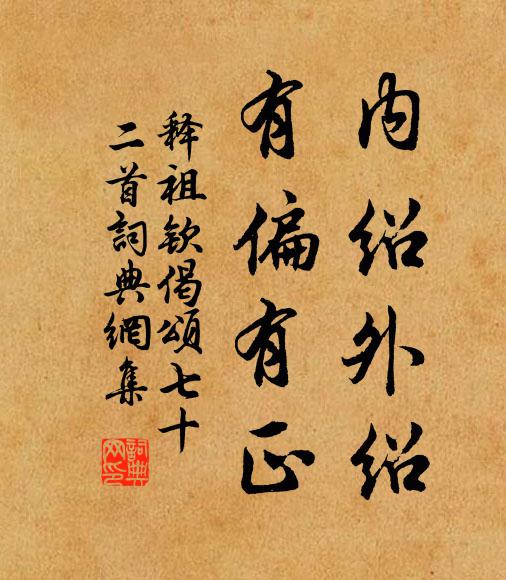 内绍外绍
有偏有正
释祖钦偈頌七十
二首詞典網集
詞典网印